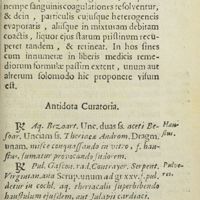 nempe sanguinis coagulationes resolventur,
& dein, particulis cujusque heterogeneis
evaporatis, aliisque in mixturam debitam
coactis, liquor ejus statum pristinum recu-
peret tandem, & retineat. In hos fines
cum innumeræ in libris medicis reme-
diorum formulæ passim extent, unum aut
alterum solomodo hic proponere visum
est.
Antidota Curatoria.
℞ Aq. Bezoart. Unc. duas ss. aceti Be-
soar. Unciam ss. Theriacæ Androm. Dragm.
unam. misce conquassando in vitro, f. hau-
stus, sumatur provocando sudorem.
Hau-
stus.
℞ Pul. Gascon. rad. Contrayer. Serpent.
Virginian. ana Scrup. unum ad gr. xxv. f. pul.
detur in cochl. aq. theriacalis superbibendo
haustulum ejusdem, aut Julapii cardiaci.
Pulve-
res.